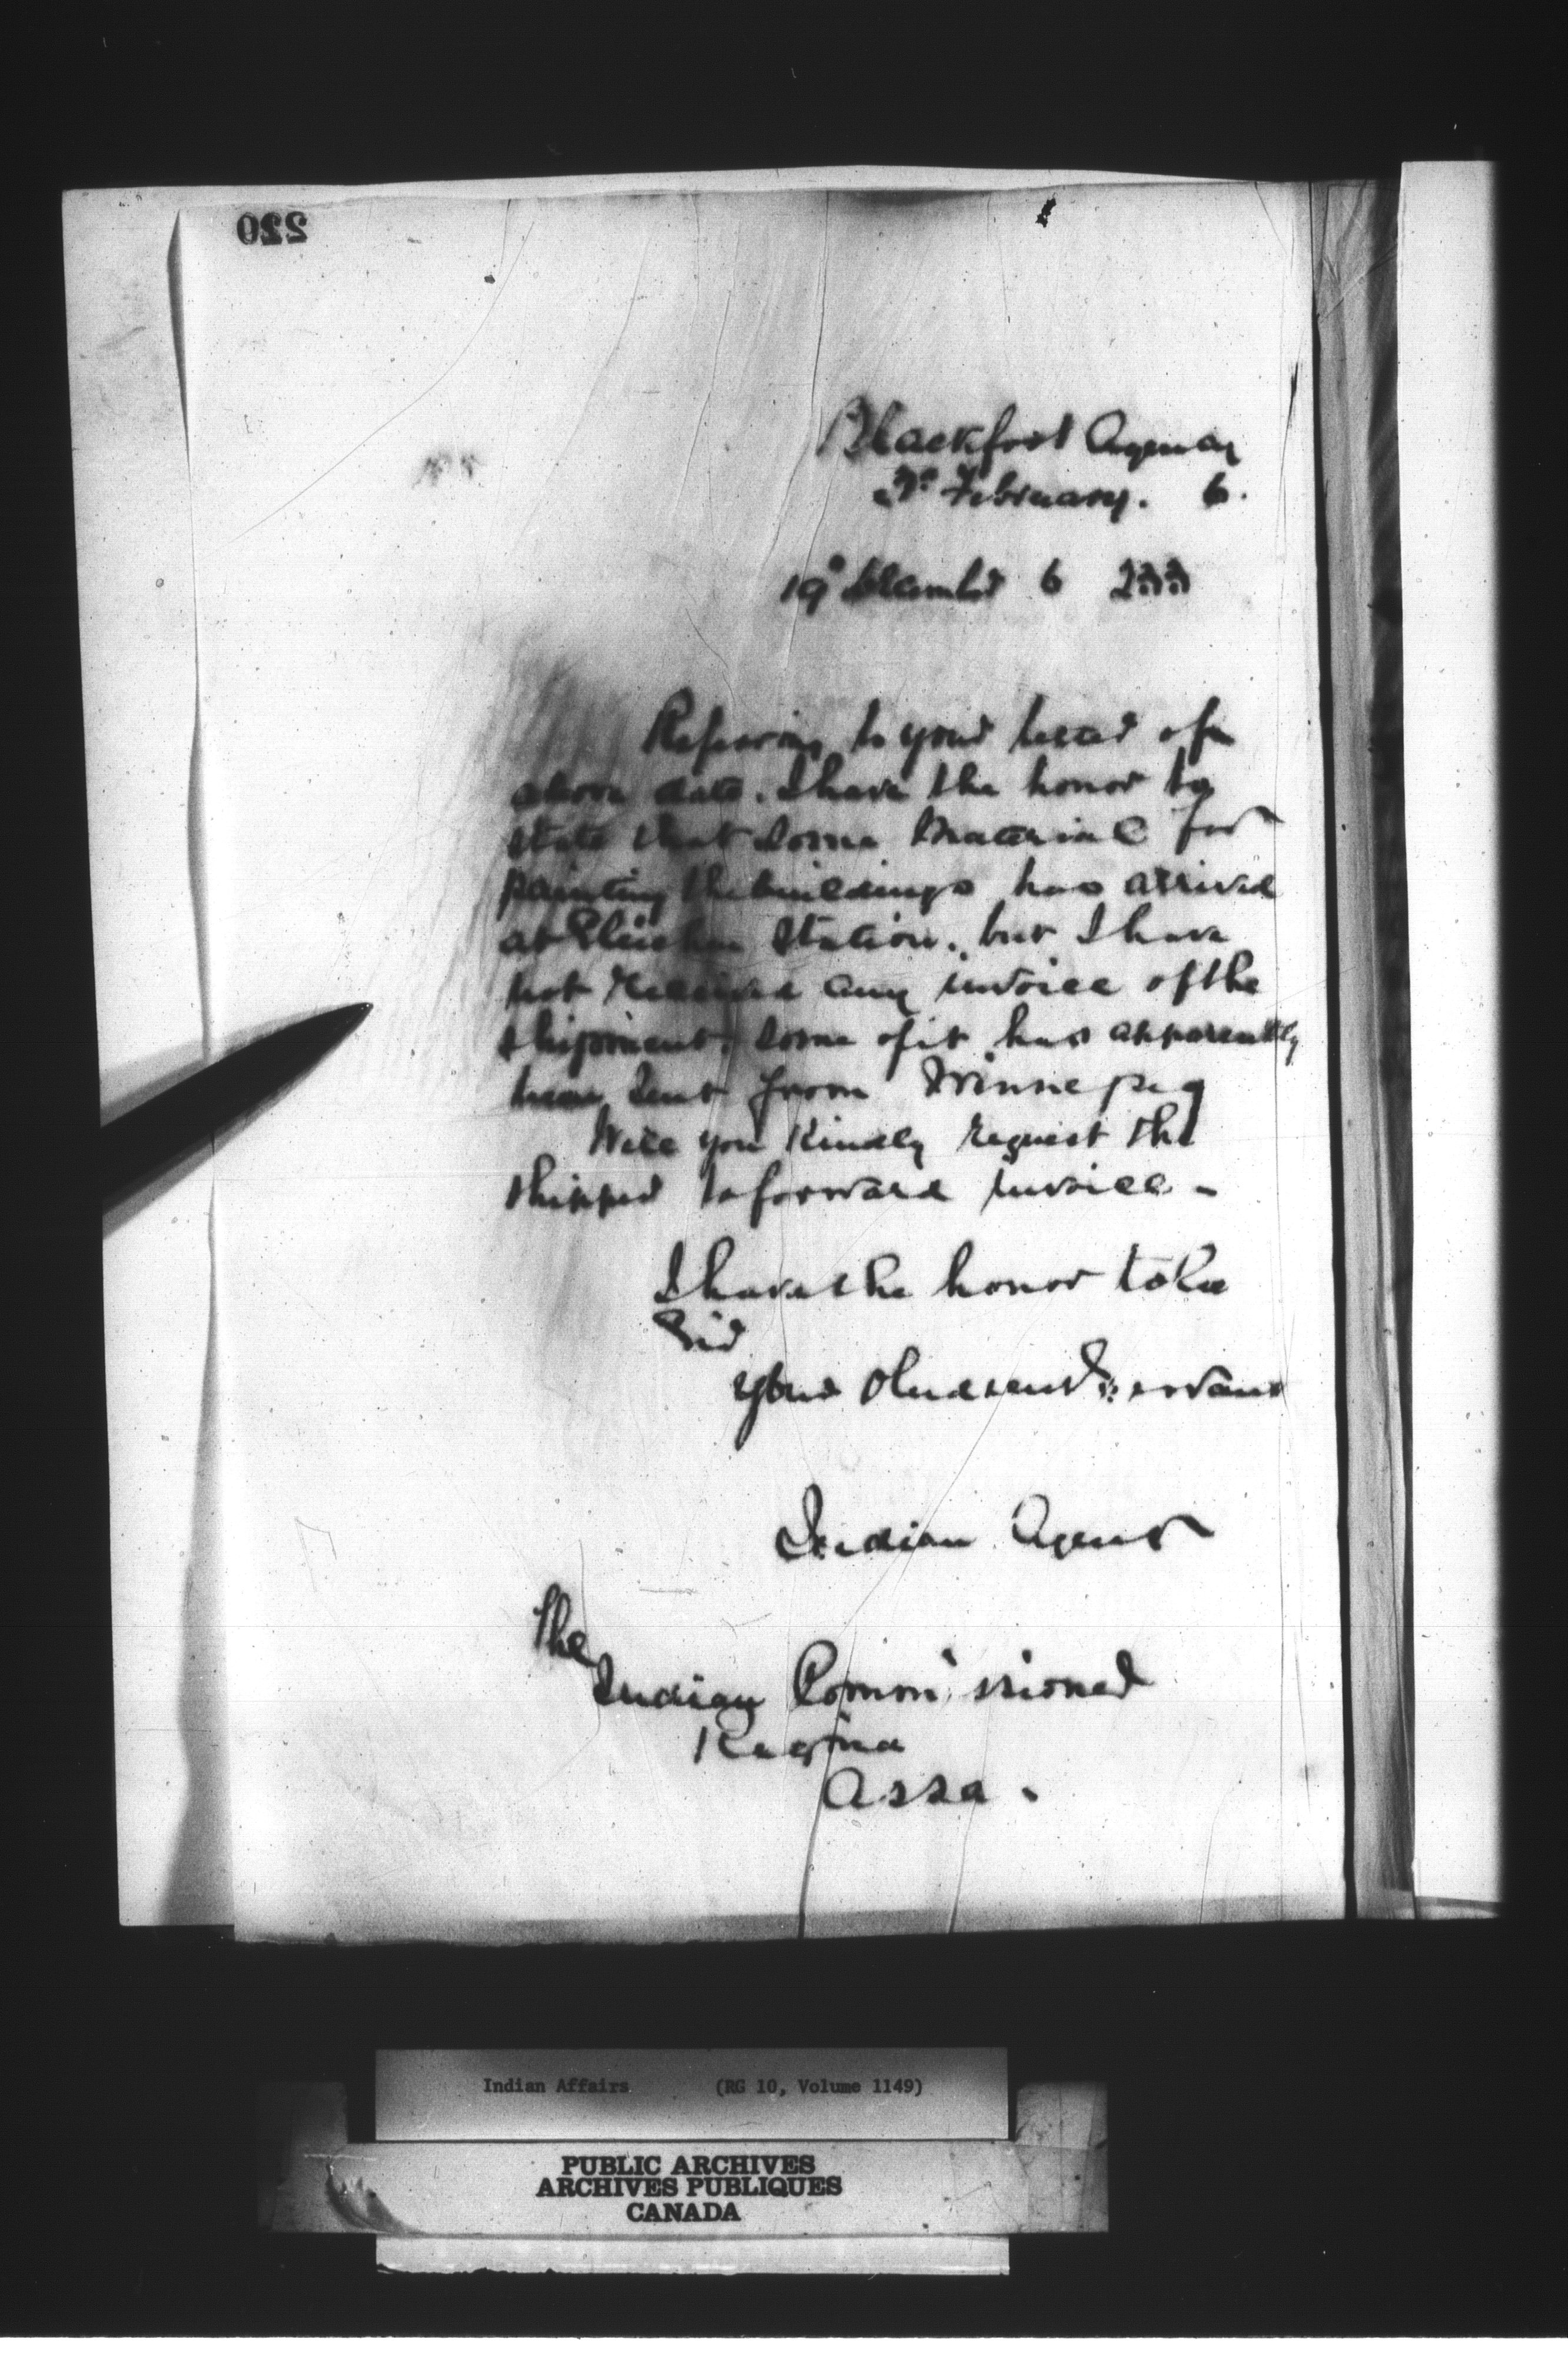 220
Blackfoot Agency
February. 6.
19° December 6 233
Referring to your letter of
above date. I have the honor to
state that some material for
painting the buildings has arrived
at Gleichen Station. but I have
not received any invoice of the
shipment. some of it has apparently
been sent from Winnepeg
Will you kindly request the
shipper to forward invoice -
I have the honor to be
Sir
Your obedient Servant
Indian Agent
The
Indian Commissioner
Regina
Assa.
Indian Affairs (RG 10, Volume 1149)
PUBLIC ARCHIVES
ARCHIVES PUBLIQUES
CANADA